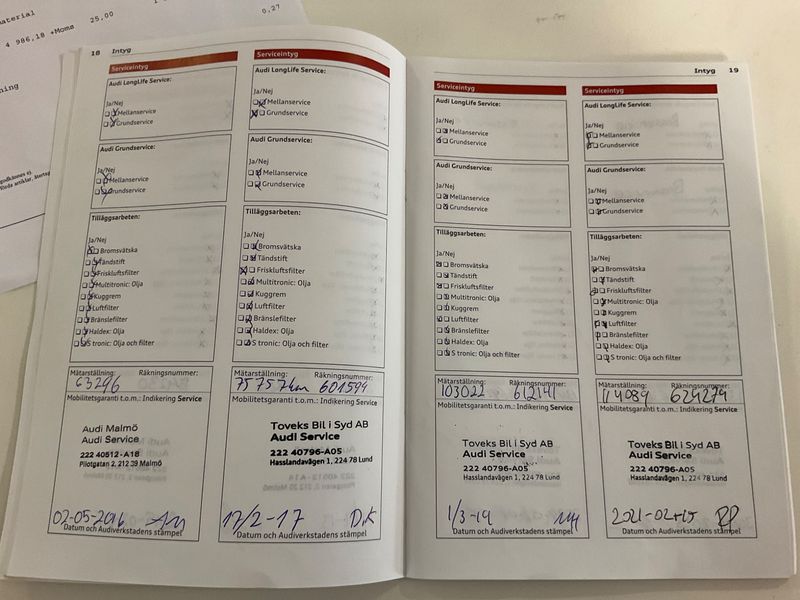 material
4 986,18 +Moms 25,00
0,27
18 Intyg
Serviceintyg
Audi LongLife Service:
Ja/Nej
Mellanservice
Grundservice
Audi Grundservice:
Ja/Nej
Mellanservice
Grundservice
Tilläggsarbeten:
Ja/Nej
Bromsvätska
Tändstift
Friskluftsfilter
Multitronic: Olja
Kuggrem
Luftfilter
Bränslefilter
Haldex: Olja
S tronic: Olja och filter
Mätarställning: Räkningsnummer:
63296
Mobilitetsgaranti t.o.m.: Indikering Service
Audi Malmö
Audi Service
222 40512-A18
Pilotgatan 2, 212 39 Malmö
02-05-2016
Datum och Audiverkstadens stämpel
Serviceintyg
Audi LongLife Service:
Ja/Nej
Mellanservice
Grundservice
Audi Grundservice:
Ja/Nej
Mellanservice
Grundservice
Tilläggsarbeten:
Ja/Nej
Bromsvätska
Tändstift
Friskluftsfilter
Multitronic: Olja
Kuggrem
Luftfilter
Bränslefilter
Haldex: Olja
S tronic: Olja och filter
Mätarställning: Räkningsnummer:
75757km 601594
Mobilitetsgaranti t.o.m.: Indikering Service
Toveks Bil i Syd AB
Audi Service
222 40796-A05
Hasslandavägen 1, 224 78 Lund
17/2-17 D.K
Datum och Audiverkstadens stämpel
Intyg 19
Serviceintyg
Audi LongLife Service:
Ja/Nej
Mellanservice
Grundservice
Audi Grundservice:
Ja/Nej
Mellanservice
Grundservice
Tilläggsarbeten:
Ja/Nej
Bromsvätska
Tändstift
Friskluftsfilter
Multitronic: Olja
Kuggrem
Luftfilter
Bränslefilter
Haldex: Olja
S tronic: Olja och filter
Mätarställning: Räkningsnummer:
103022 612141
Mobilitetsgaranti t.o.m.: Indikering Service
Toveks Bil i Syd AB
Audi Service
222 40796-A05
Hasslandavägen 1, 224 78 Lund
1/3-19
Datum och Audiverkstadens stämpel
Serviceintyg
Audi LongLife Service:
Ja/Nej
Mellanservice
Grundservice
Audi Grundservice:
Ja/Nej
Mellanservice
Grundservice
Tilläggsarbeten:
Ja/Nej
Bromsvätska
Tändstift
Friskluftsfilter
Multitronic: Olja
Kuggrem
Luftfilter
Bränslefilter
Haldex: Olja
S tronic: Olja och filter
Mätarställning: Räkningsnummer:
114089 624274
Mobilitetsgaranti t.o.m.: Indikering Service
Toveks Bil i Syd AB
Audi Service
222 40796-A05
Hasslandavägen 1, 224 78 Lund
2021-02-15
Datum och Audiverkstadens stämpel